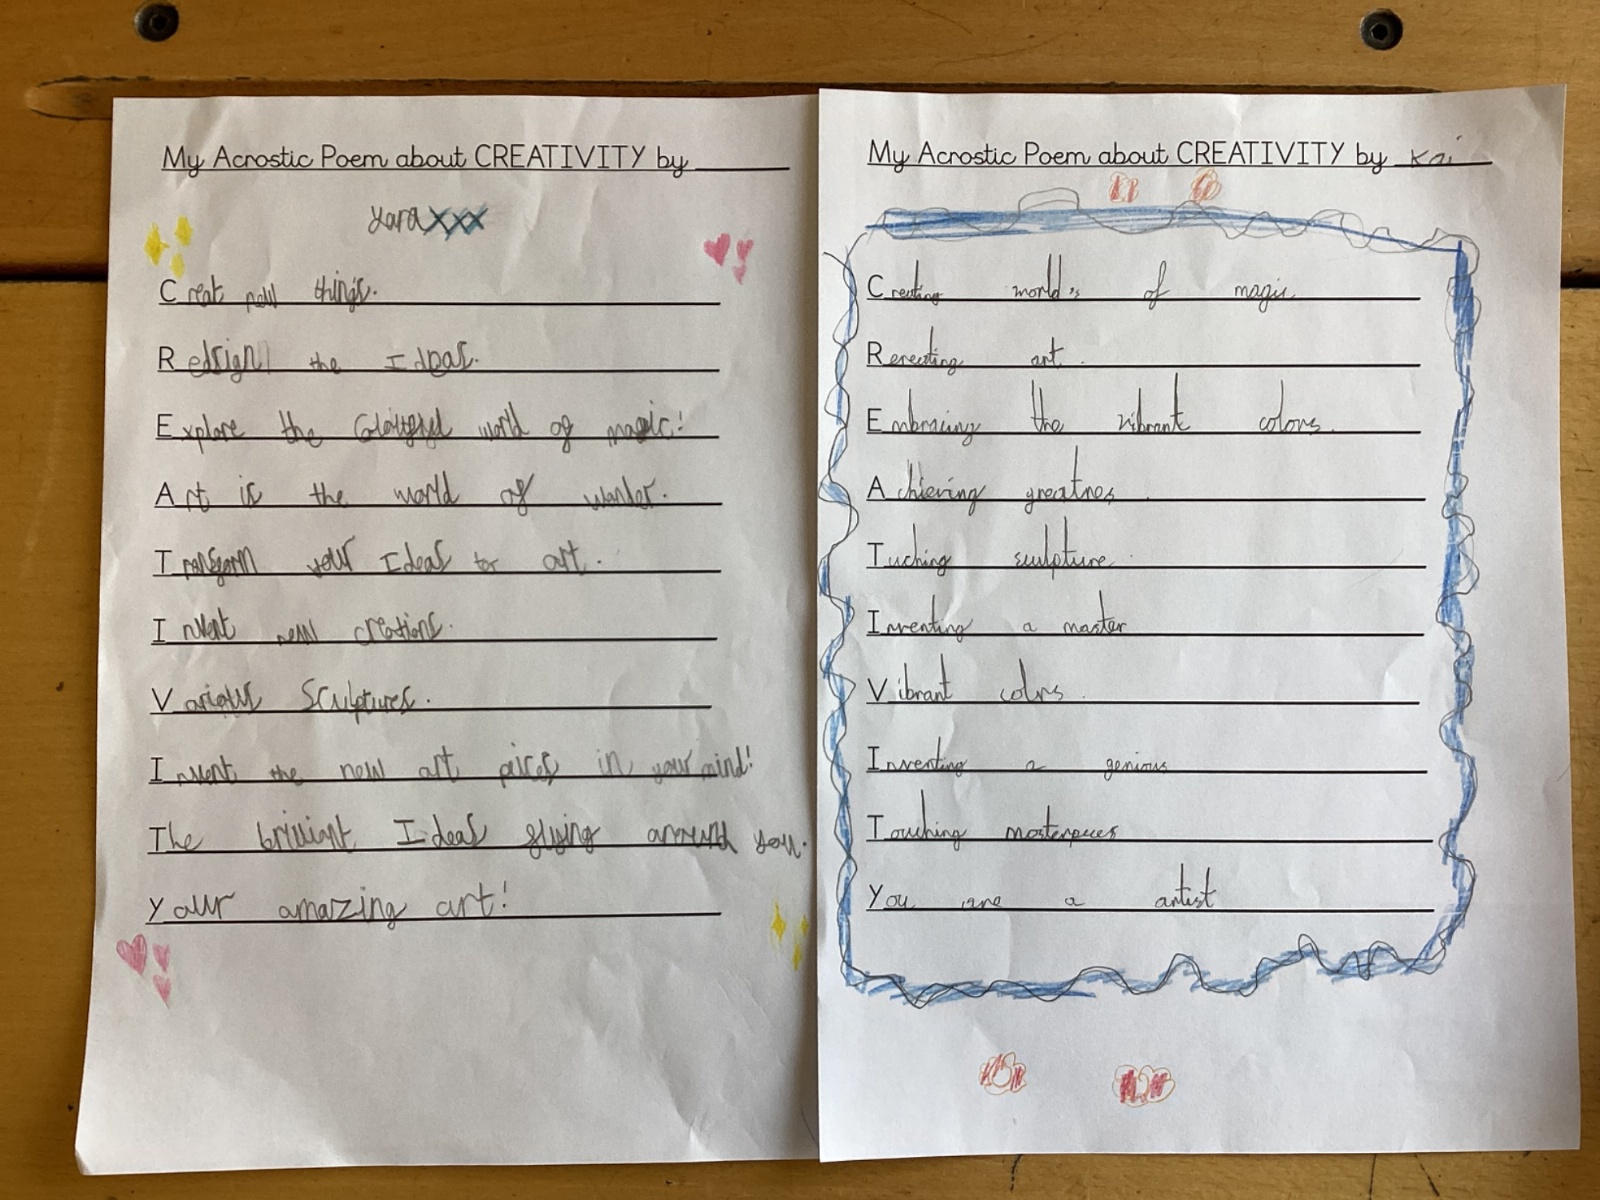 My Acrostic Poem about CREATIVITY by
Yara xxx
Creat new things.
Redsign the Ideas.
Explore the Colourful world of magic!
Art is the world of wonder.
Transform your Ideas to art.
Invent new creations.
Various Sculptures.
Invent the new art peices in your mind!
The brilliant Ideas flying around you.
Your amazing art!
My Acrostic Poem about CREATIVITY by Kai
Creating world's of magic.
Rereating art.
Embracing the vibrant colors.
Achieving greatnes.
Tuching sculpture.
Inventing a master
Vibrant colors.
Inventing a genious
Touching masterpeces
You are a artist